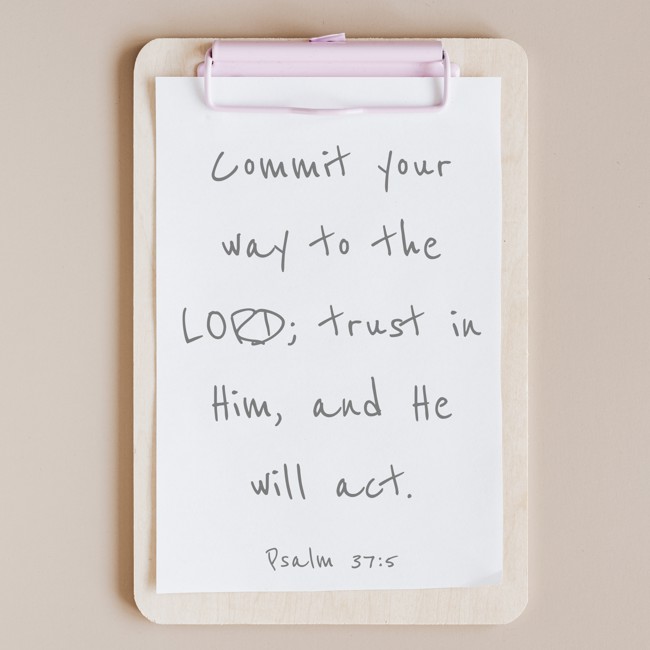 Commit your
way to the
LORD; trust in
Him, and He
will act.
Psalm 37:5